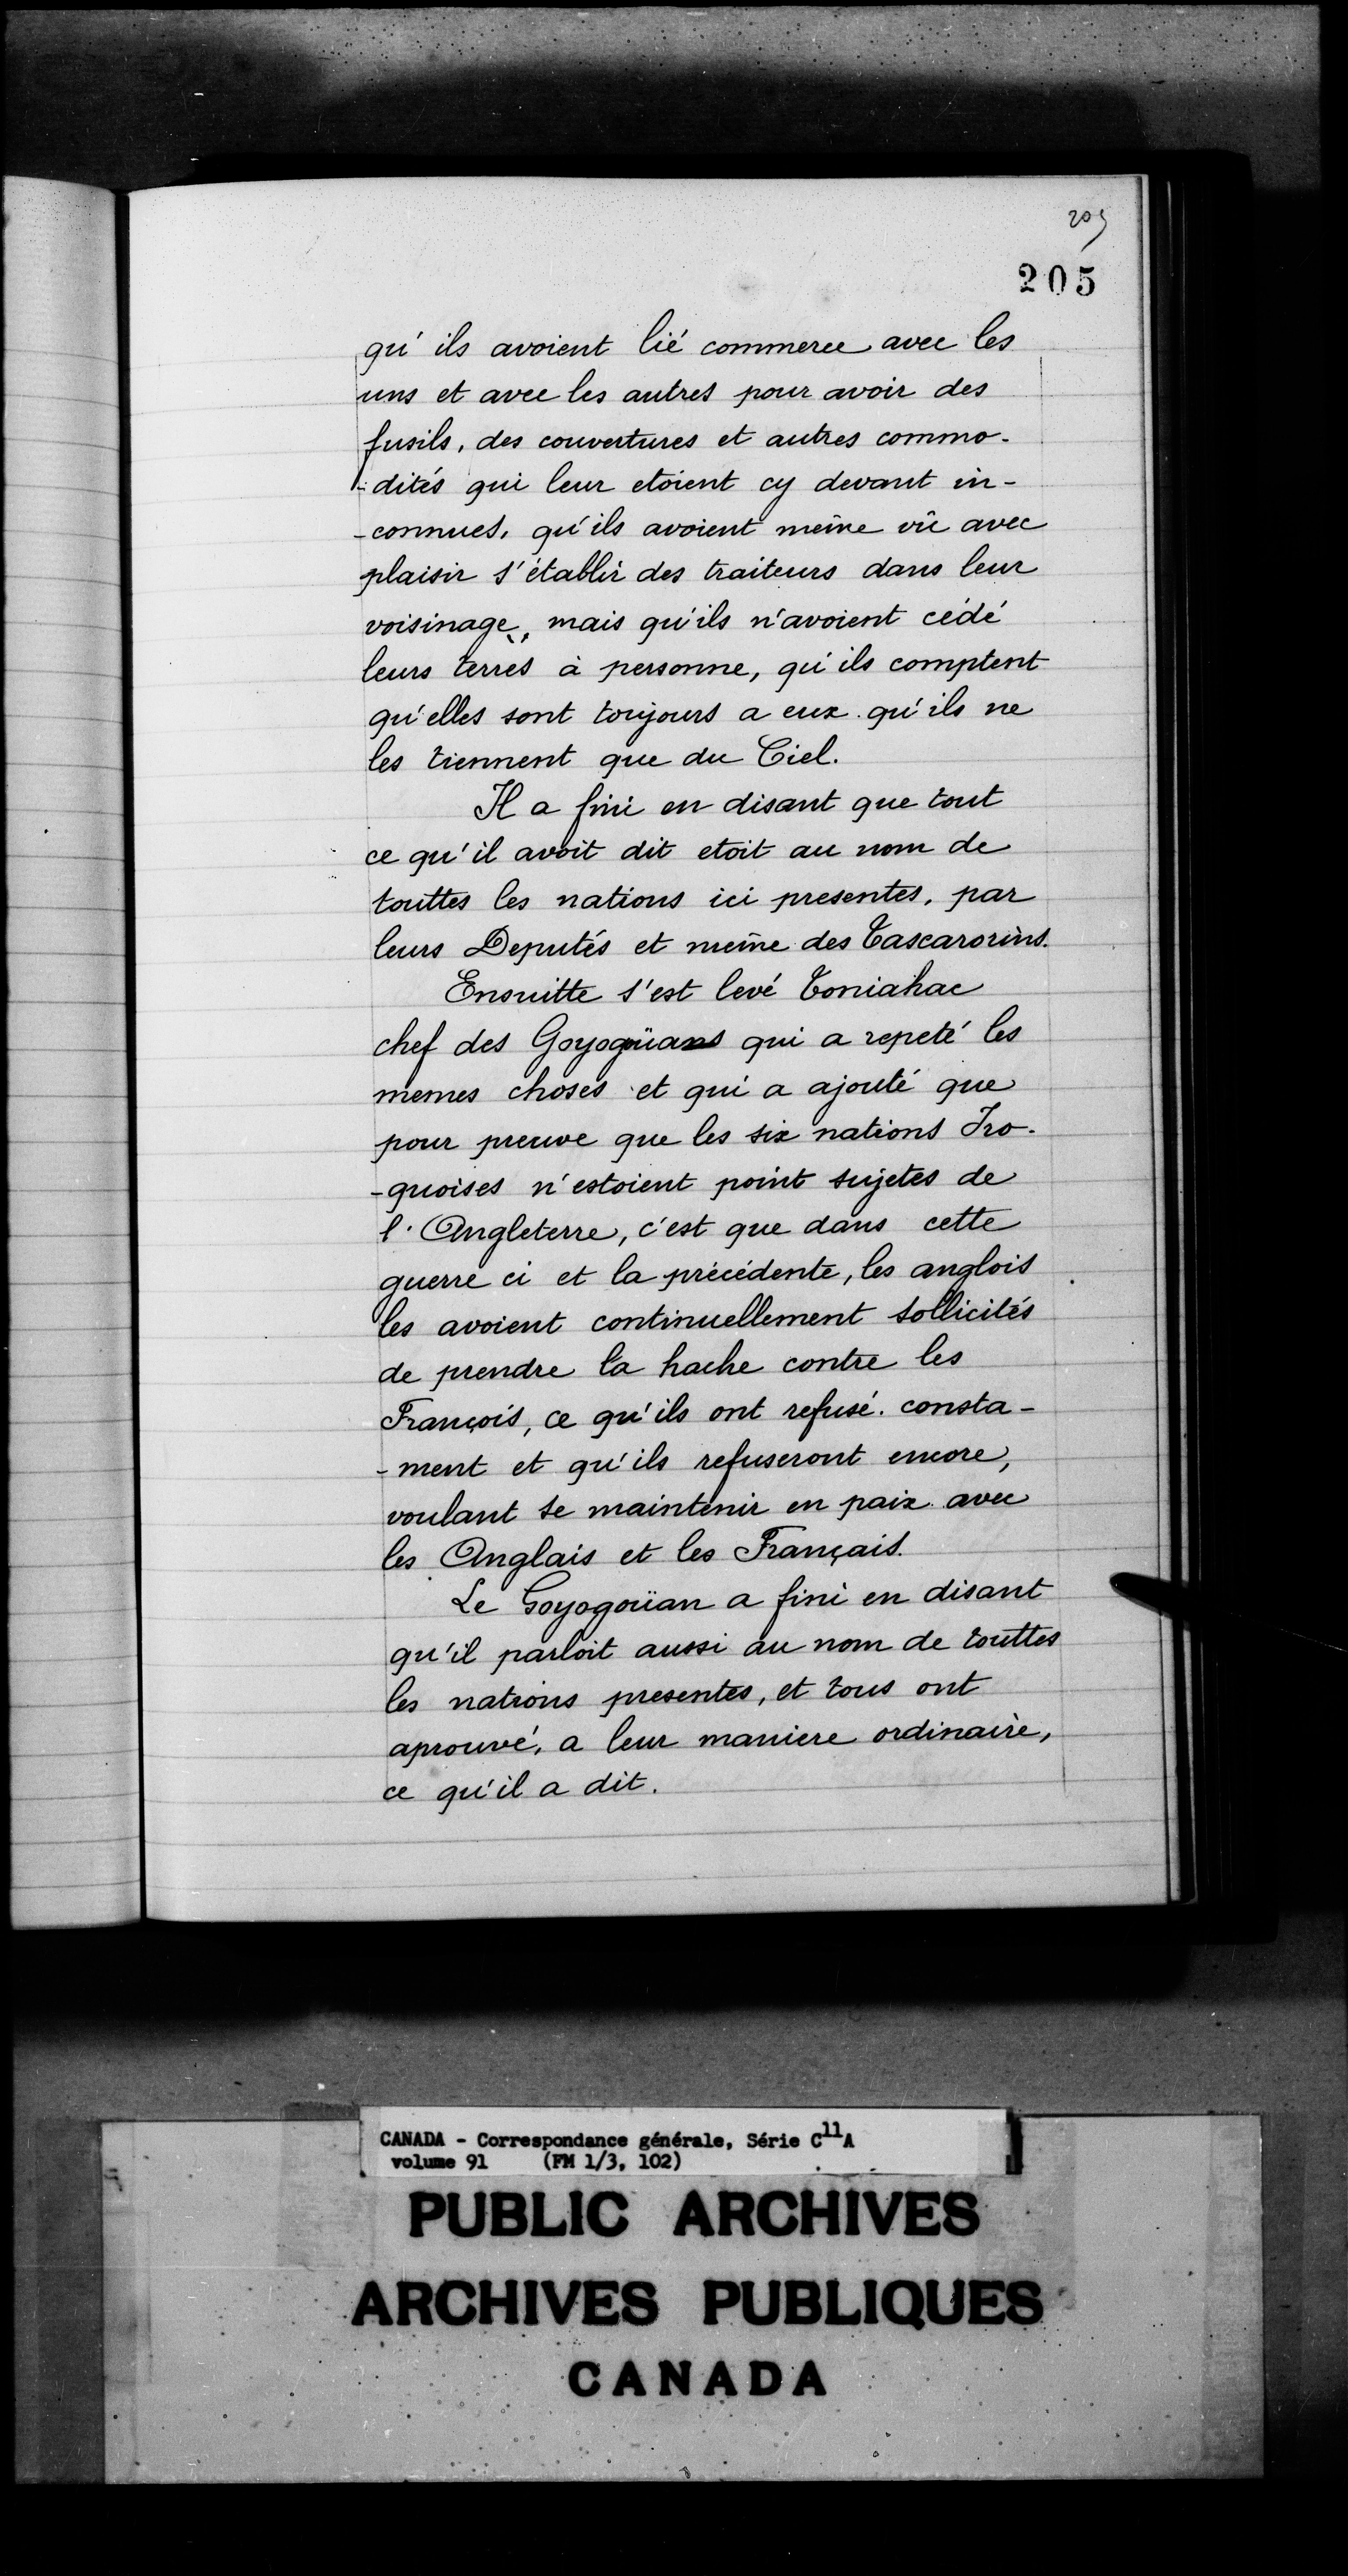 205
205
qu'ils avoient lié commerce avec les
uns et avec les autres pour avoir des
fusils, des couvertures et autres commo-
-dités qui leur etoient cy devant in-
-connues, qu'ils avoient même vû avec
plaisir s'établir des traiteurs dans leur
voisinage, mais qu'ils n'avoient cédé
leurs terres à personne, qu'ils comptent
qu'elles sont toujours a eux qu'ils ne
les tiennent que du Ciel.
Il a fini en disant que tout
ce qu'il avoit dit etoit au nom de
touttes les nations ici presentes, par
leurs Deputés et même des Tascarorins.
Ensuitte s'est levé Toniahac
chef des Goyogüans qui a repeté les
memes choses et qui a ajouté que
pour preuve que les six nations Iro-
-quoises n'estoient point sujetes de
l'Angleterre, c'est que dans cette
guerre ci et la précédente, les anglois
les avoient continuellement sollicités
de prendre la hache contre les
François, ce qu'ils ont refusé consta-
-ment et qu'ils refuseront encore,
voulant se maintenir en paix avec
les Anglais et les Français.
Le Goyogoüan a fini en disant
qu'il parloit aussi au nom de touttes
les nations presentes, et tous ont
aprouvé, a leur maniere ordinaire,
ce qu'il a dit.
CANADA - Correspondance générale, Série C11A
volume 91 (FM 1/3, 102)
PUBLIC ARCHIVES
ARCHIVES PUBLIQUES
CANADA